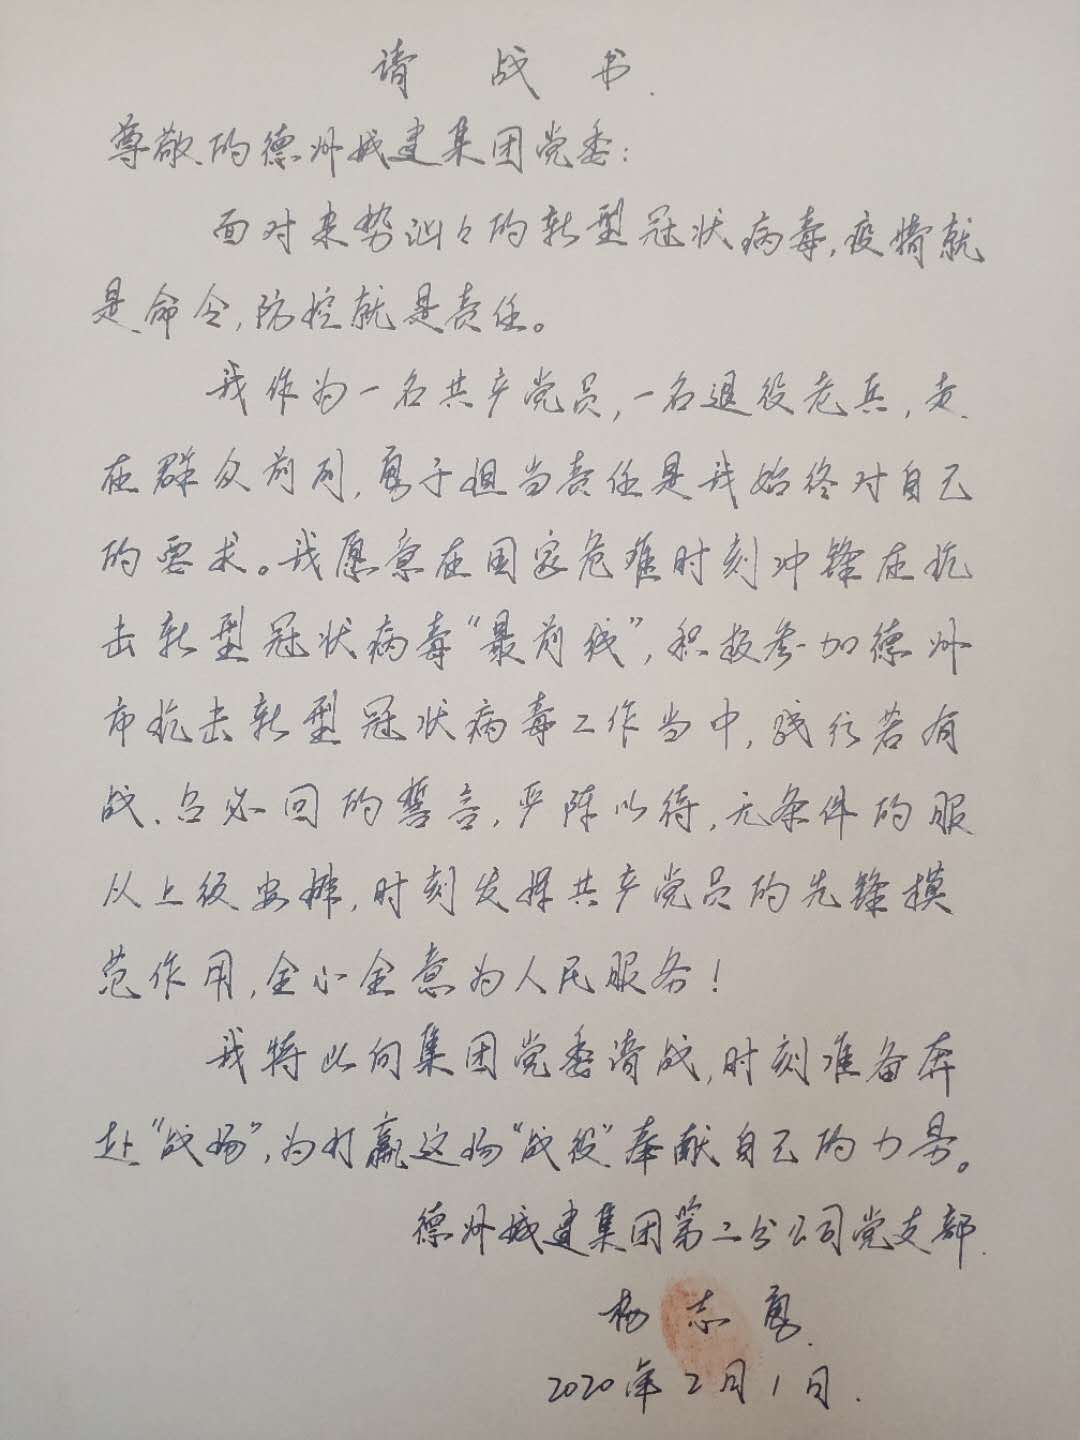 请战书
尊敬的德州城建集团党委：
面对来势汹々的新型冠状病毒,疫情就
是命令,防控就是责任。
我作为一名共产党员,一名退役老兵,走
在群众前列,勇于担当责任是我始终对自己
的要求。我愿意在国家危难时刻冲锋在抗
击新型冠状病毒“最前线”,积极参加德州
市抗击新型冠状病毒工作当中,践行若有
战、召必回的誓言,严阵以待,无条件的服
从上级安排,时刻发挥共产党员的先锋模
范作用,全心全意为人民服务!
我特此向集团党委请战,时刻准备奔
赴“战场”,为打赢这场“战役”奉献自己的力量。
德州城建集团第二分公司党支部
杨志勇
2020年2月1日.